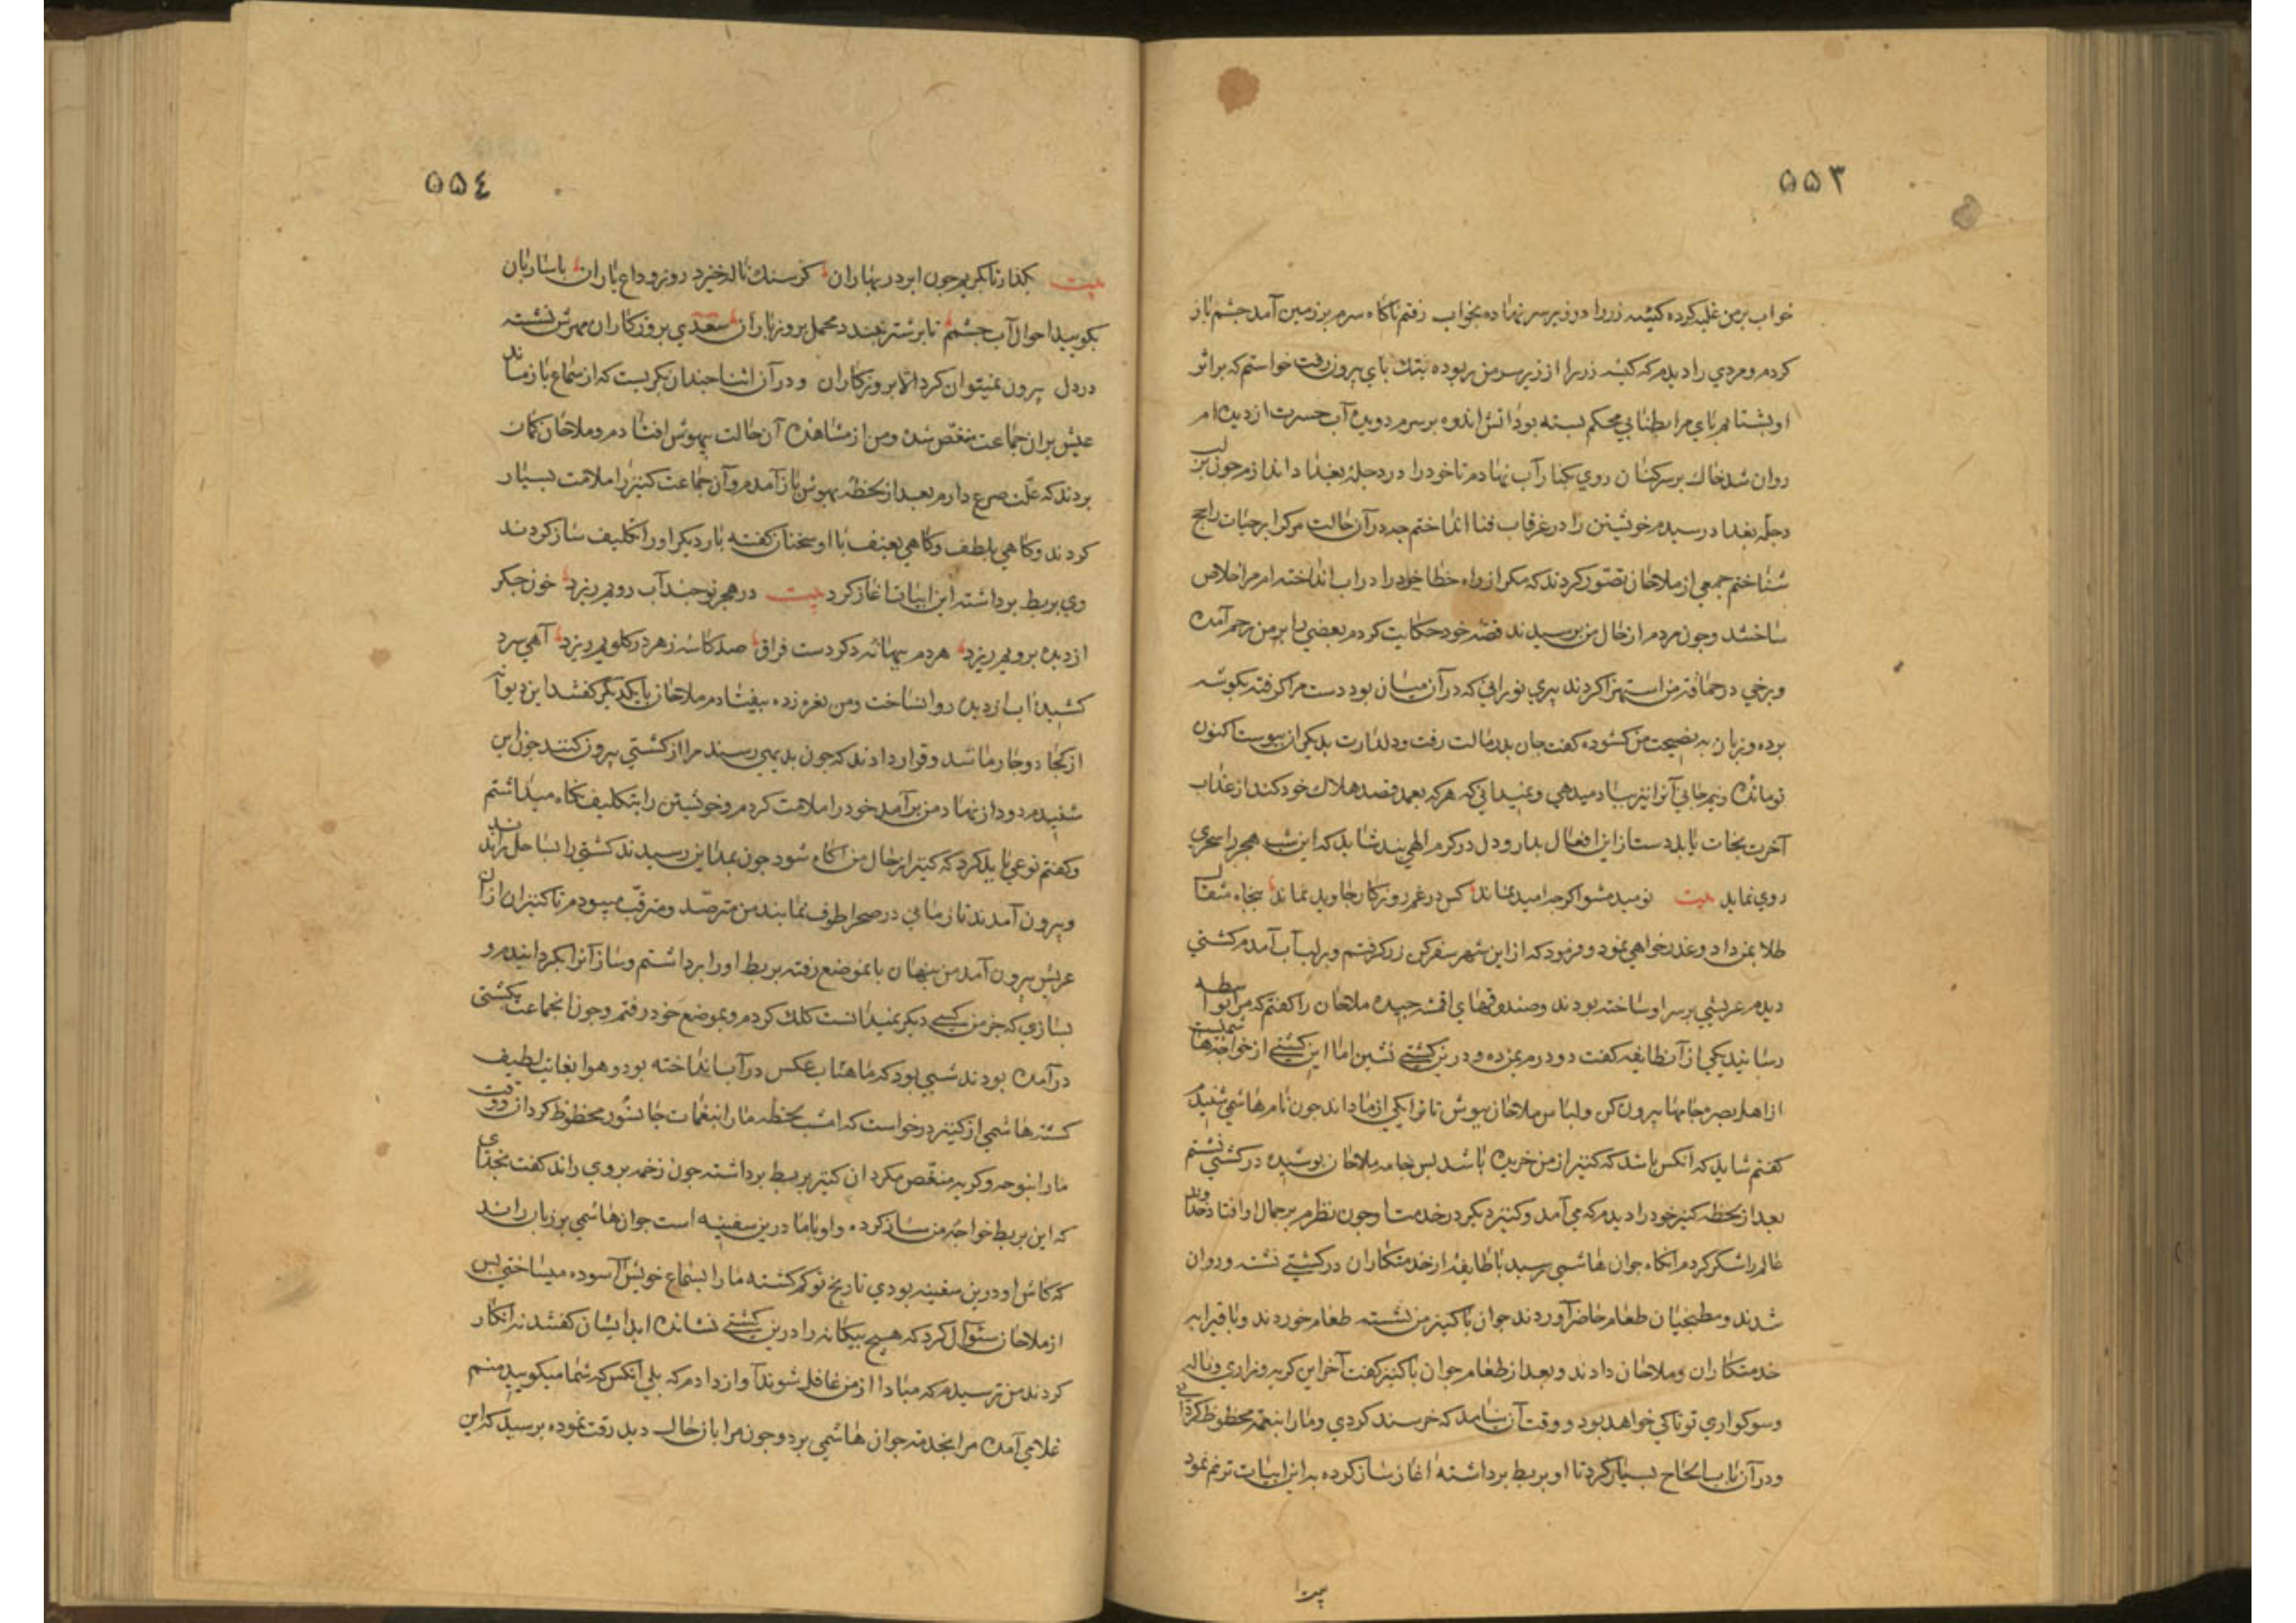 ۵۵۳
خواب بر من غلبه کرده کیسه زر را در زیر سر نهاده بخواب رفتم ناکاه سرم بر زمین آمد جشم باز
کردم و مردی را دیدم که کیسه زر را از زیر سر من ربوده بتک بای بیرون رفت خواستم که بر اثر
او بشتابم بای مرا بطنابی محکم بسته بود آتش اندوه بر سرم دوید آب حسرت از دیده ام
روان شد خاک بر سر کنان روی بکنار آب نهادم تا خود را در دجله بغداد اندازم جون بلب
دجله بغداد رسیدم خویشتن را در غرقاب فنا انداختم جه در آن حالت مرک را بر حیات راجح
شناختم جمعی از ملاحان تصور کردند که مکر از راه خطا خود را در اب انداخته ام مرا خلاص
ساختند و جون مردم از حال من برسیدند قصه خود حکایت کردم بعضی را بر من رحم آمده
و برخی در حماقت من استهزا کردند پیری نورانی که در آن میان بود دست مرا کرفته بکوشه
برده و زبان به نصیحت من کشوده کفت جان بدر مالت رفت و دلدارت بدیکران بیوست اکنون
تو مانده و نیم جانی آنرا نیز بباد میدهی و نمیدانی که هر که بعمد قصد هلاک خود کند از عذاب
آخرت نجات یابد دست از این افعال بدار و دل در کرم الهی بند شاید که این شب هجر را سحری
روی نماید بیت نومید مشو اکرجه امید نماند کس در غم روزکار جاوید نماند بنجاه مثقال
طلا بمن داد و عذرخواهی نمود و فرمود که از این شهر سفر کن زر کرفتم و بر لب آب آمدم کشتی
دیدم عریشی بر سر او ساخته بودند و صندوقهای اقمشه جیده ملاحان را کفتم که مرا بواسطه
رسانید یکی از آن طایفه کفت دو درم بمن ده و درین کشتی نشین اما این کشتی از خواجه هاشمیست
از اهل بصره جامها بیرون کن و لباس ملاحان بپوش تا ترا یکی از ما داند جون نام هاشمی شنیدم
کفتم شاید که آنکس باشد که کنیز از من خریده باشد بس جامه ملاحان بوشیده در کشتی نشستم
بعد از لحظه کنیز خود را دیدم که می آمد و کنیز دیکر در خدمت او جون نظرم بر جمال او افتاد خداوند
عالم را شکر کردم آنکاه جوان هاشمی برسید با طایفه از خدمتکاران در کشتی نشسته و روان
شدند و مطبخیان طعام حاضر آوردند جوان با کنیز من نشسته طعام خوردند و باقی را به
خدمتکاران و ملاحان دادند و بعد از طعام جوان با کنیز کفت آخر این کریه و زاری و ناله
و سوکواری تو تا کی خواهد بود و وقت آن نیامد که خرسند کردی و ما را بنغمه محظوظ کردانی
و در آن باب الحاح بسیار کرد تا او بربط برداشته اغاز ساز کرده به این ابیات ترنم نمود
بیت
۵۵۴
بیت بکذار تا بکریم جون ابر در بهاران کز سنک ناله خیزد روز وداع یاران با ساربان
بکویید احوال آب جشمم تا بر شتر نبندد محمل بروز باران سعدی بروزکاران مهرش نشسته
در دل بیرون نمیتوان کرد الا بروزکاران و در آن اثنا جندان بکریست که از سماع باز ماند
عیش بران جماعت منغص شده و من از مشاهده آن حالت بیهوش افتادم و ملاحان کمان
بردند که علت صرع دارم بعد از لحظه بهوش باز آمدم و آن جماعت کنیز را ملامت بسیار
کردند و کاهی بلطف و کاهی بعنف با او سخنان کفته بار دیکر او را تکلیف ساز کردند
وی بربط برداشته این ابیات اغاز کرد بیت در هجر تو جند آب رویم ریزد خون جکر
از دیده برویم ریزد هر دم ببهانه دکر دست فراق صد کاسه زهر در کلویم ریزد آهی سرد
کشیده اب از دیده روان ساخت و من نعره زده بیفتادم ملاحان با یکدیکر کفتند این دیوانه
از کجا دوجار ما شد و قرار دادند که جون بدیهی رسند مرا از کشتی بیرون کنند جون این
شنیدم دود از نهاد من برآمد خود را ملامت کردم و خویشتن را بتکلیف نکاه میداشتم
و کفتم نوعی باید کرد که کنیز از حال من آکاه شود جون بمداین رسیدند کشتی را بساحل راندند
و بیرون آمدند تا زمانی در صحرا طوف نمایند من مترصد و مترقب میبودم تا کنیزان از آن
عریش بیرون آمدند من بنهان بانموضع رفته بربط او را برداشتم و ساز آنرا بکردانیدم و
بسازی که جز من کسی دیکر نمیدانست کلک کردم و بموضع خود رفتم و جون آنجماعت بکشتی
درآمده بودند شبی بود که ماهتاب عکس در آب انداخته بود و هوا بغایت لطیف
کشته هاشمی از کنیز درخواست که امشب لحظه ما را بنغمات جانسوز محظوظ کردان و وقت
ما را بنوحه و کریه منغص مکردان کنیز بربط برداشته جون زخمه بروی راند کفت بخدای
که این بربط خواجه من ساز کرده و او با ما درین سفینه است جوان هاشمی بر زبان راند
که کاش او درین سفینه بودی تا ریخ تو کم کشته ما را بسماع خویش آسوده میساختی بس
از ملاحان سئوال کرد که هیج بیکانه را درین کشتی نشانده اید ایشان کفتند نه انکار
کردند من ترسیدم که مبادا از من غافل شوند آواز دادم که بلی آنکس که شما میکویید منم
غلامی آمده مرا بخدمت جوان هاشمی برد و جون مرا بان حال دید رقت نموده برسید که این